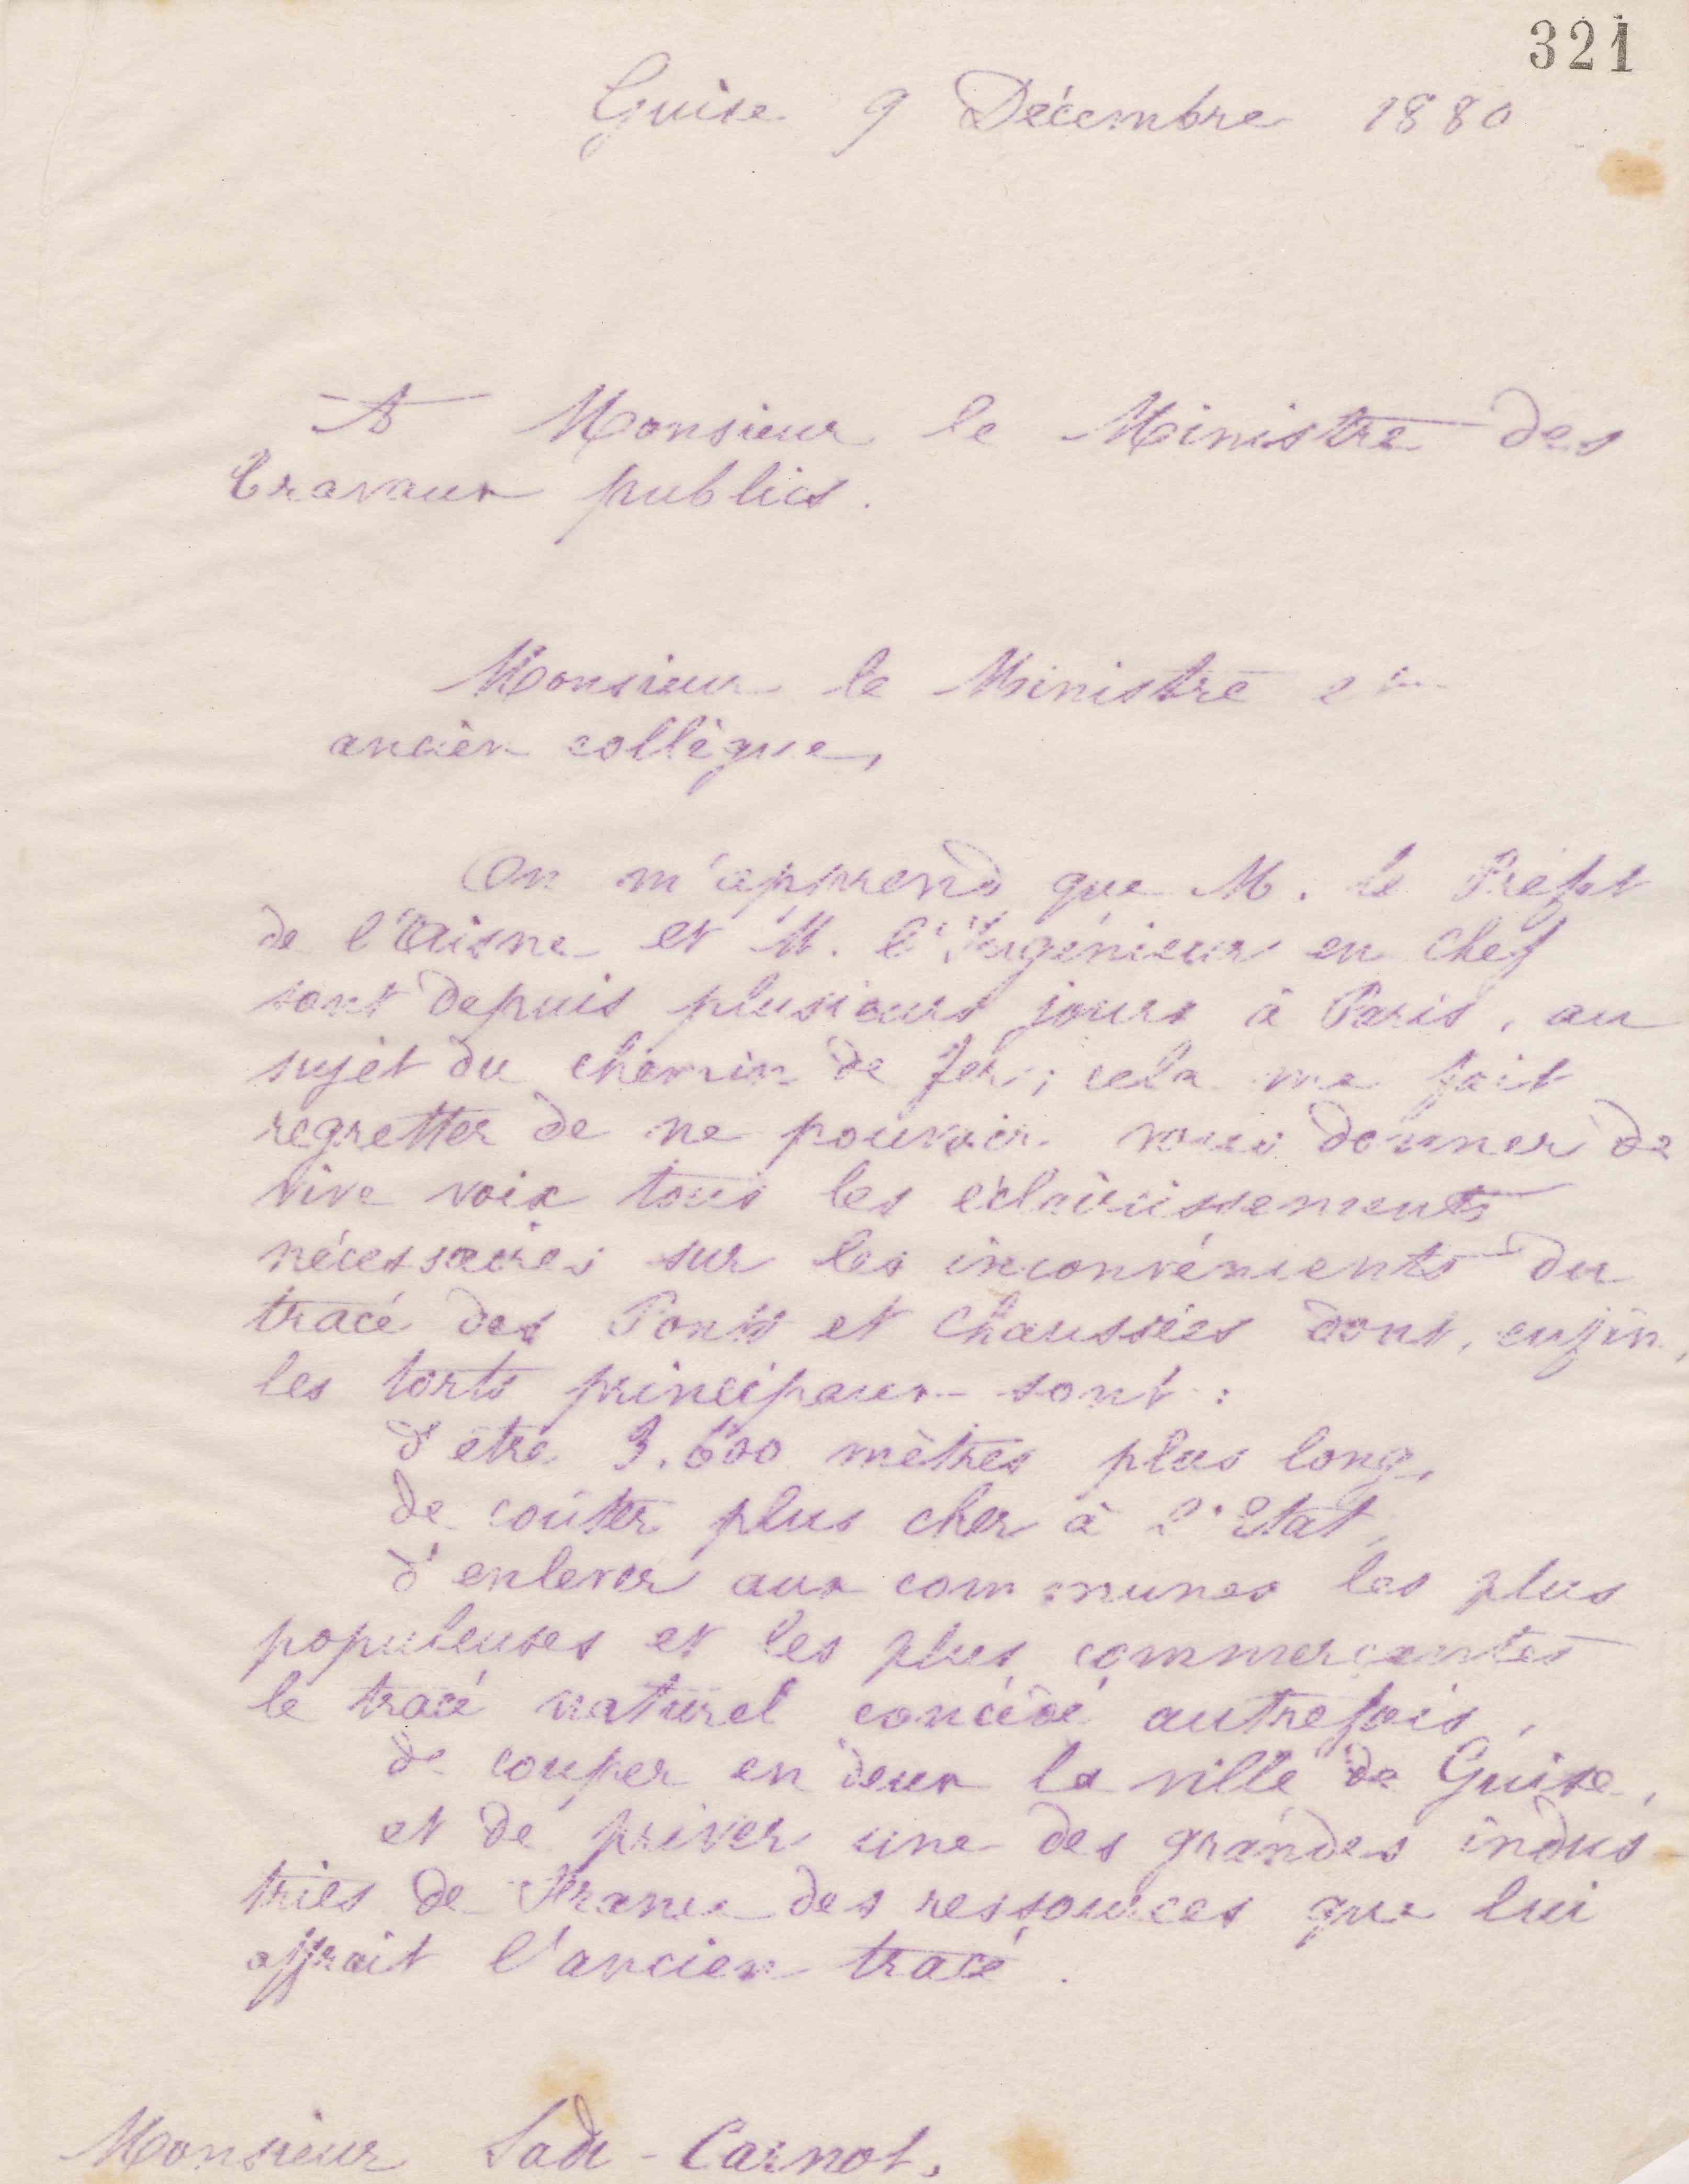 321
Guise 9 Décembre 1880
A Monsieur le Ministre des
Travaux publics.
Monsieur le Ministre et
ancien collègue,
On m'apprend que M. le Préfet
de l'Aisne et M. l'Ingénieur en chef
sont depuis plusieurs jours à Paris, au
sujet du chemin de fer; cela me fait
regretter de ne pouvoir vous donner de
vive voix tous les éclaircissements
nécessaires sur les inconvénients du
tracé des Ponts et Chaussées dont, enfin,
les torts principaux sont :
d'être 3.600 mètres plus long,
de coûter plus cher à l'Etat,
d'enlever aux communes les plus
populeuses et les plus commerçantes
le tracé naturel concédé autrefois,
de couper en deux la ville de Guise,
et de priver une des grandes indus-
tries de France des ressources que lui
offrait l'ancien tracé.
Monsieur Sadi-Carnot.